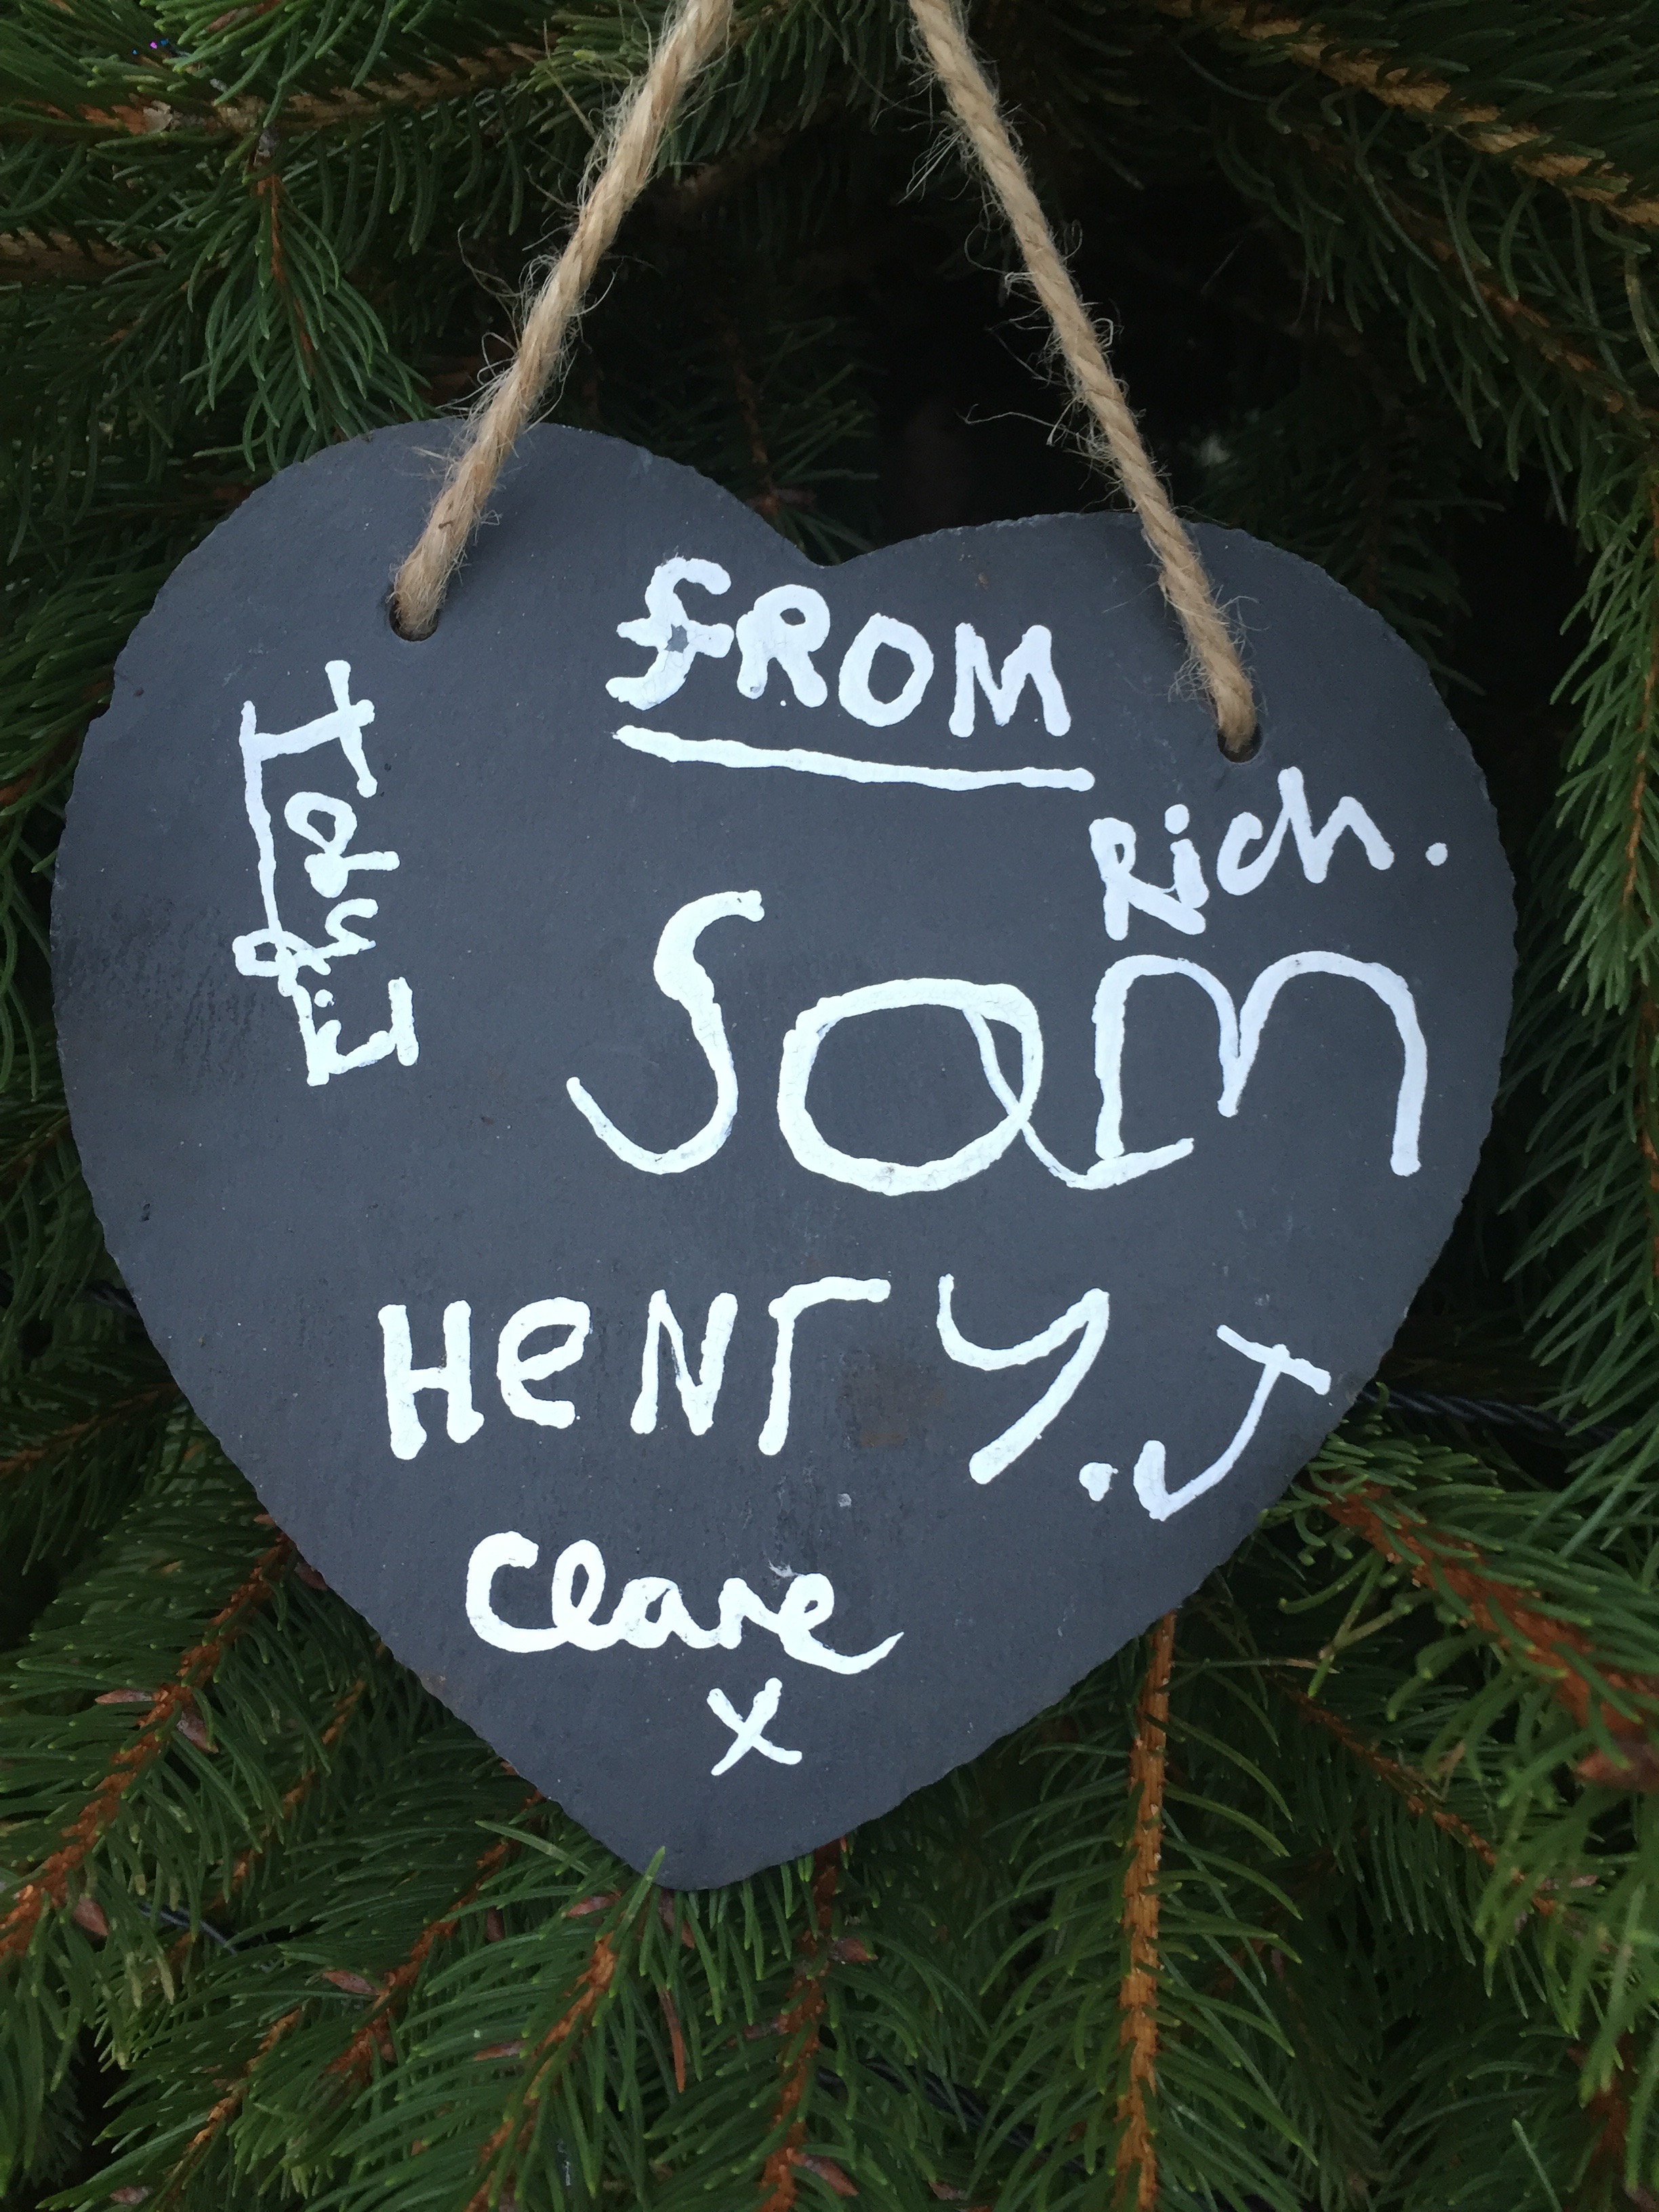 FROM
Rich.
Sam
Henry.J
Clare
x